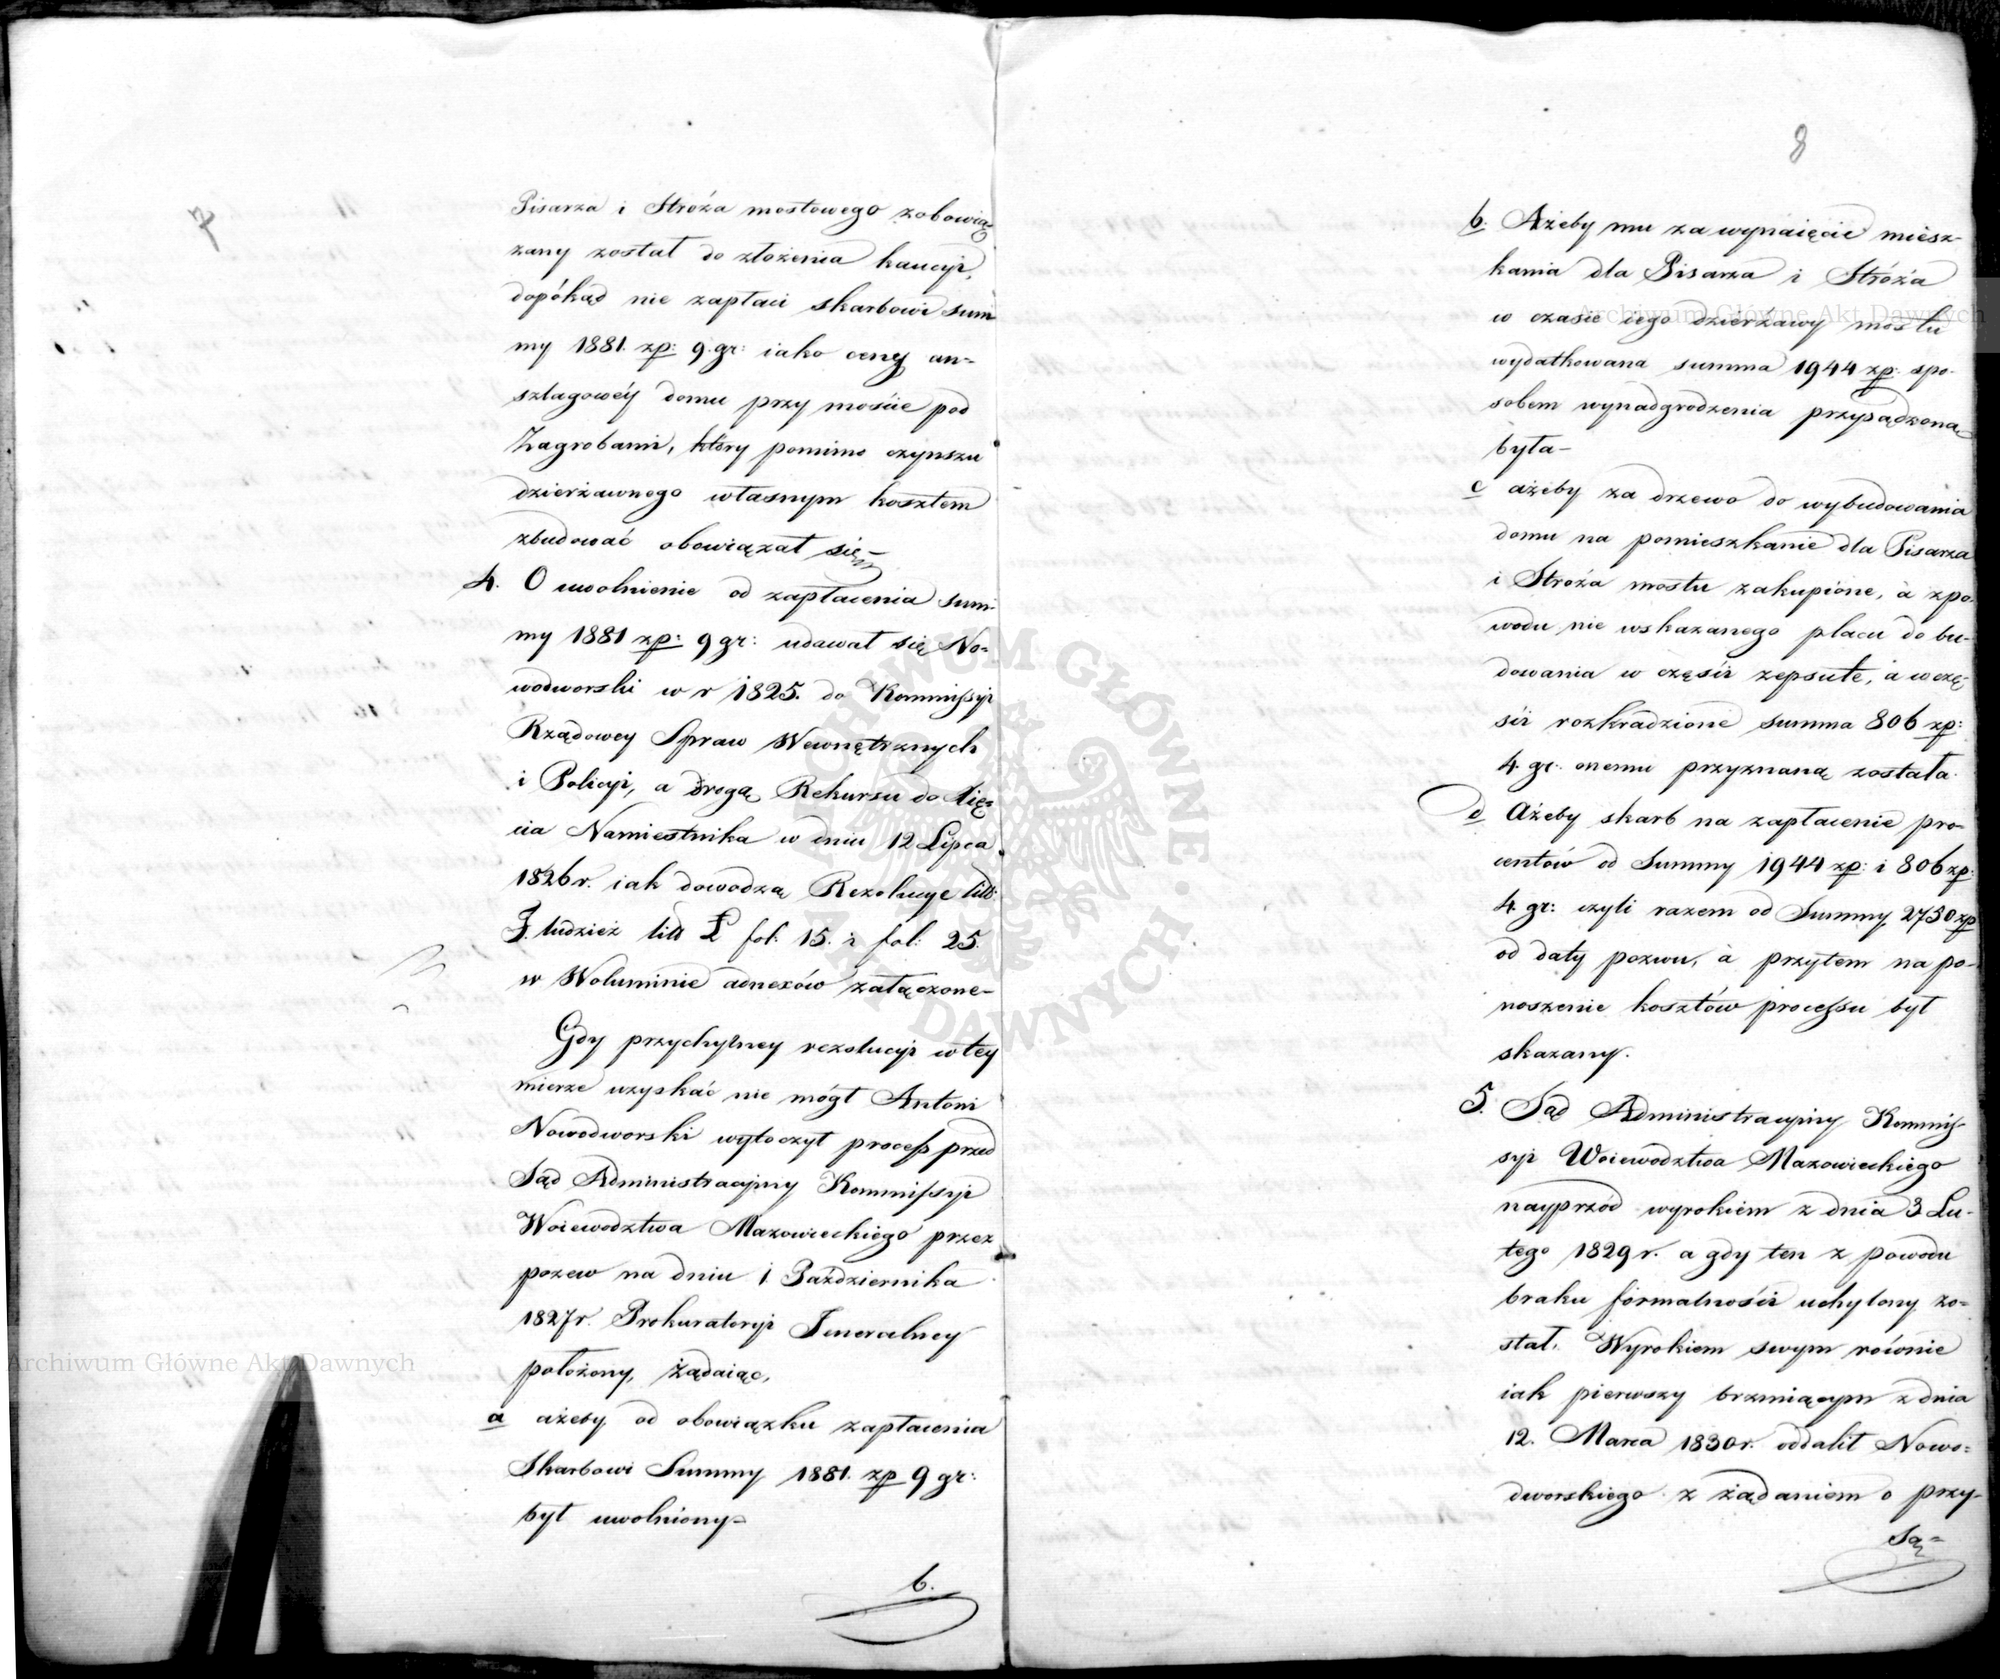 7
Pisarza i Stróża mostowego zobowią-
zany został do złożenia kaucyi,
dopókąd nie zapłaci skarbowi sum
my 1881. zp: 9. gr: iako ceny an-
szlagowéy domu przy moście pod
Zagrobami, który pomimo czynszu
dzierżawnego własnym kosztem
zbudować obowiązał się-
4. O uwolnienie od zapłacenia sum-
my 1881 zp: 9 gr: udawał się No-
wodworski w r 1825. do Kommissyi
Rządowey Spraw Wewnętrznych
i Policyi, a drogą Rekursu do Xię-
cia Namiestnika w dniu 12 Lipca
1826 r. iak dowodzą Rezolucye litt:
J. tudzież litt Ł fol: 15. i fol: 25.
w Woluminie adnexów załączone-
Gdy przychylney rezolucyi w tey
mierze uzyskać nie mógł Antoni
Nowodworski wytoczył process przed
Sąd Administracyiny Kommissyi
Woiewodztwa Mazowieckiego przez
pozew na dniu 1. Października
1827 r. Prokuratoryi Jeneralney
położony, żądaiąc,
a ażeby od obowiązku zapłacenia
Skarbowi Summy 1881. zp 9 gr:
był uwolniony-
b.
8
b. Ażeby mu za wynaięcie miesz-
kania dla Pisarza i Stróża
w czasie iego dzierżawy mostu
wydatkowana summa 1944 zp: spo-
sobem wynadgrodzenia przysądzoną
była-
c ażeby za drzewo do wybudowania
domu na pomieszkanie dla Pisarza
i Stróża mostu zakupione, à zpo-
wodu nie wskazanego placu do bu-
dowania w części zepsute, à w czę-
ści rozkradzione summa 806 zp:
4. gr: onemu przyznaną została.
d Ażeby skarb na zapłacenie pro-
centów od Summy 1944 zp: i 806 zp:
4. gr: czyli razem od Summy 2750 zp
od daty pozwu, à przytem na po-
noszenie kosztów processu był
skazany.
5. Sąd Administracyiny Kommis-
syi Woiewodztwa Mazowieckiego
nayprzód wyrokiem z dnia 3 Lu-
tego 1829 r. a gdy ten z powodu
braku formalności uchylony zo-
stał, Wyrokiem swym roównie
iak pierwszy brzmiącym z dnia
12. Marca 1830 r. oddalił Nowo-
dworskiego z żądaniem o przy-
są-
Archiwum Główne Akt Dawnych
Archiwum Główne Akt Dawnych
ARCHIWUM GŁÓWNE AKT DAWNYCH